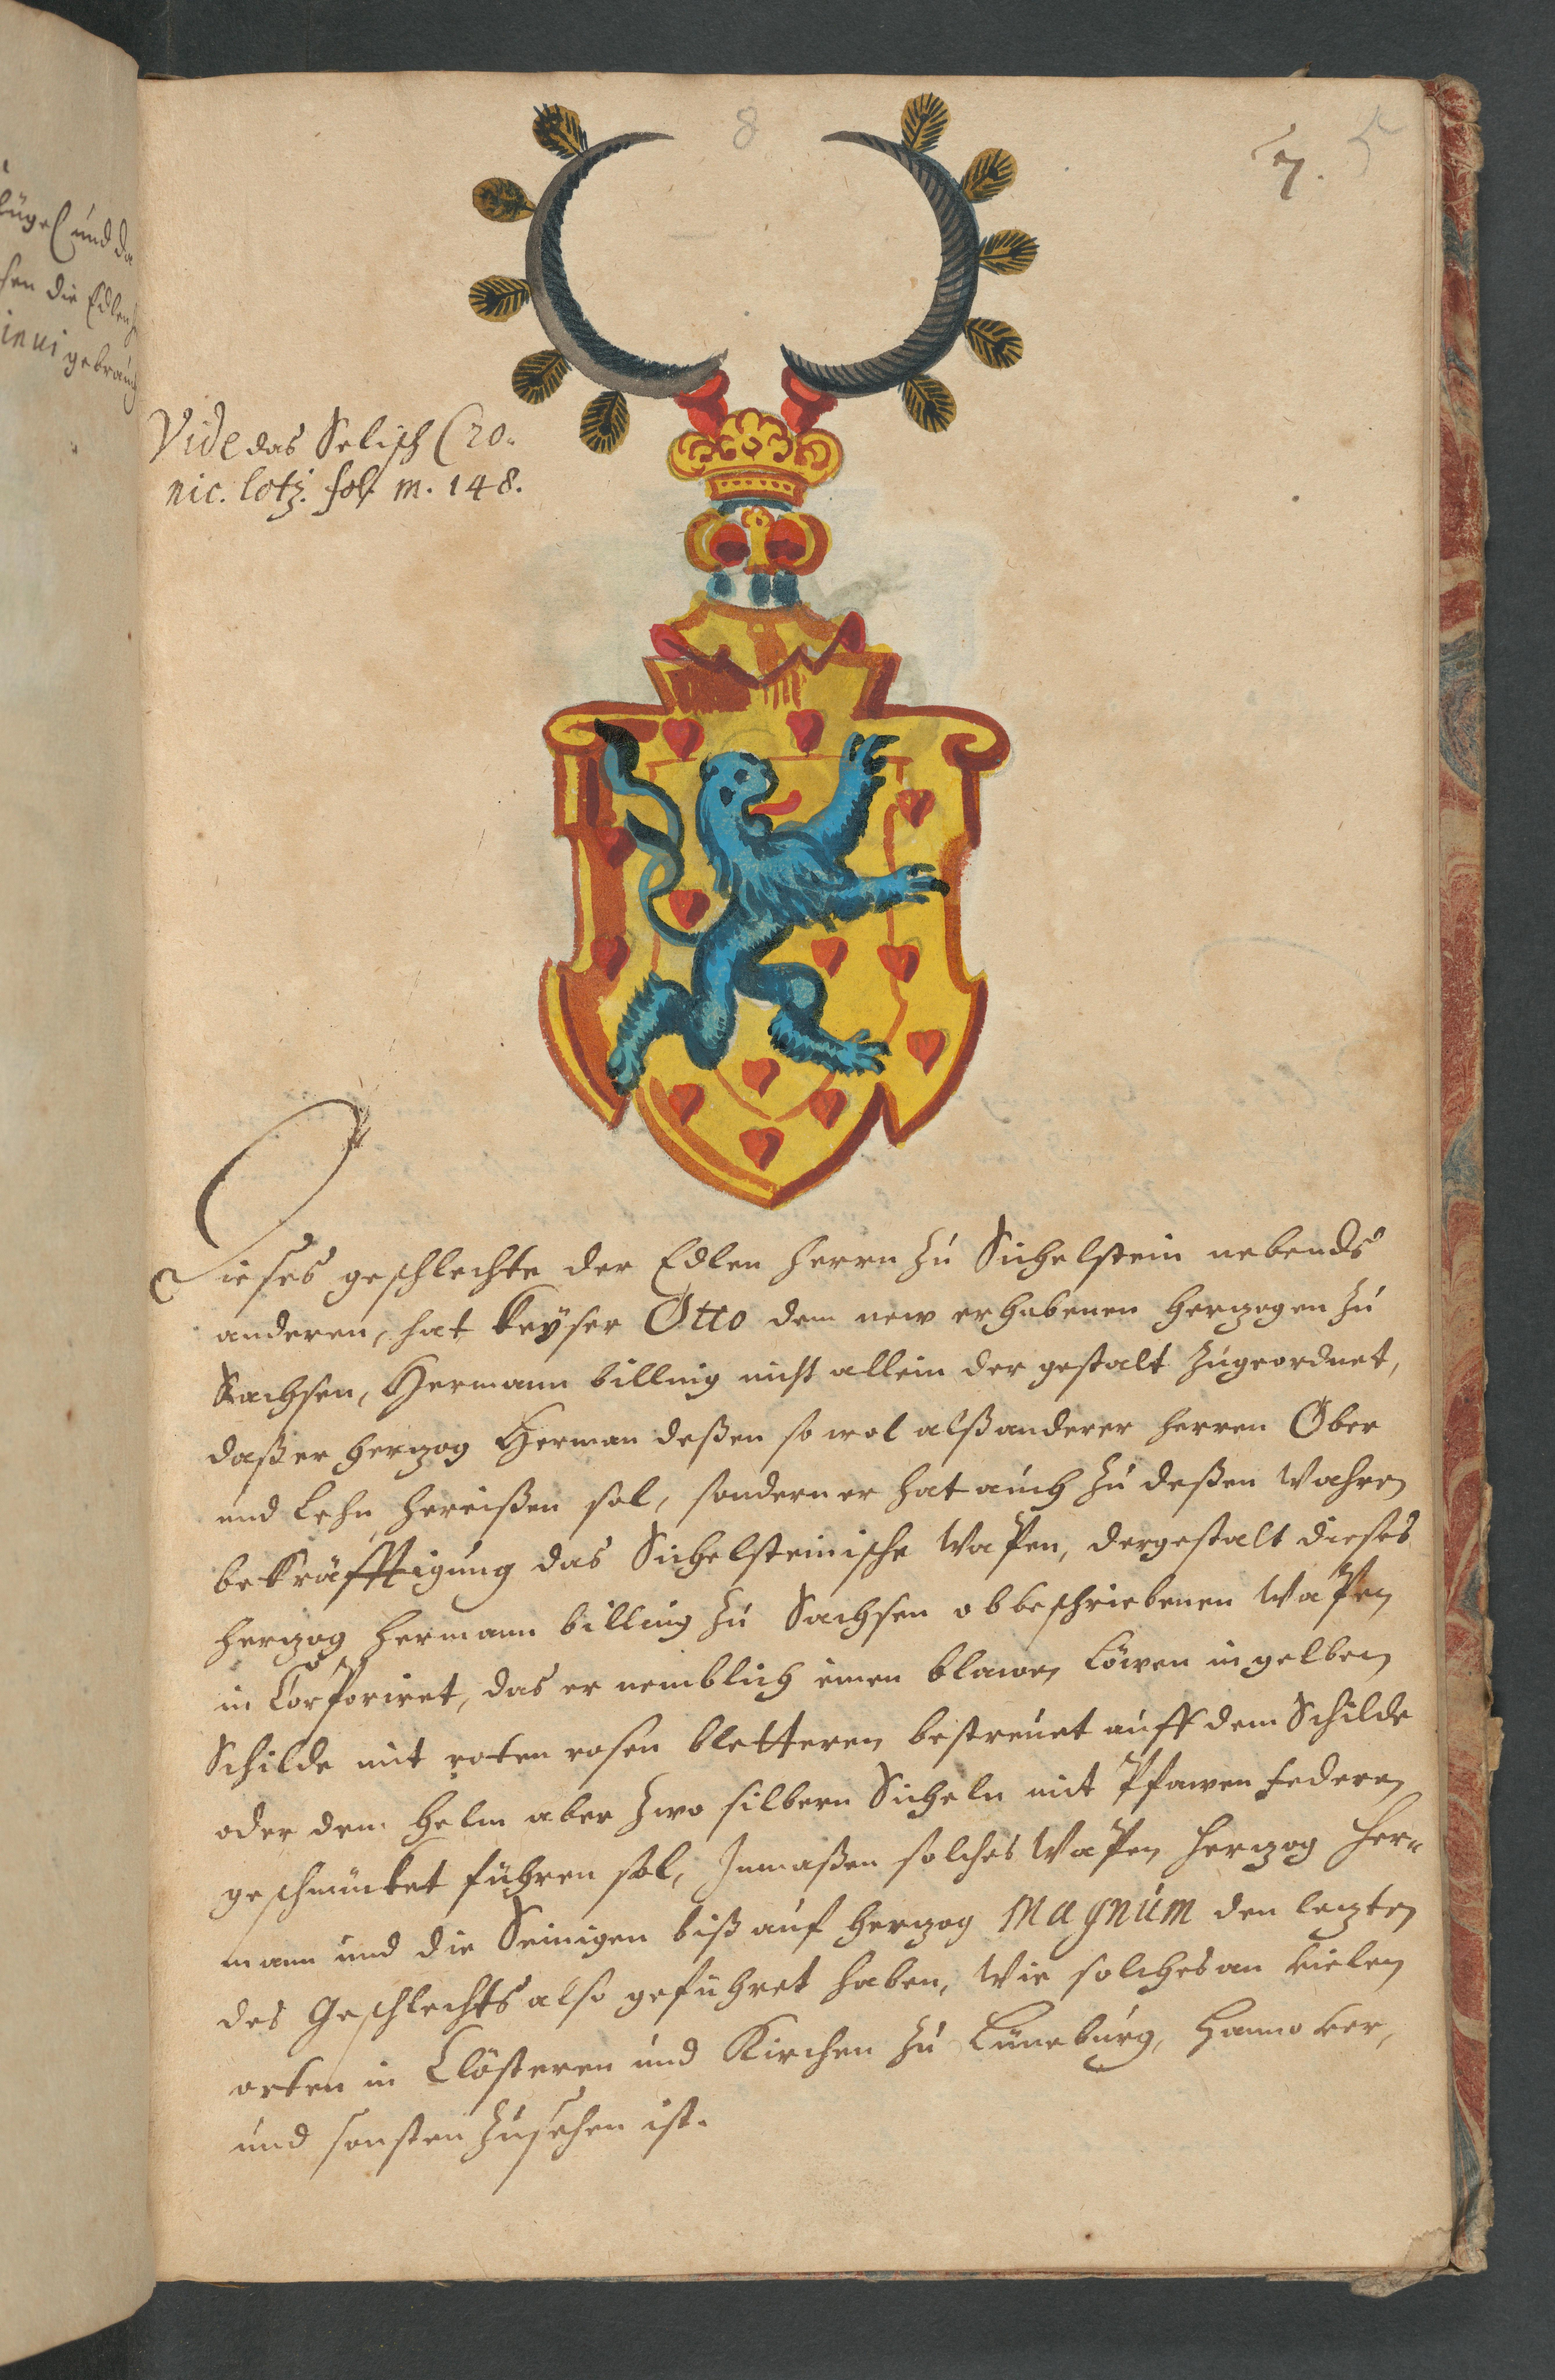 8
7.
5
hügel und da
sen die Edlen
inui gebrauch
Vide das Selisch Cro-
nic. lotz. fol. m. 148.
Dieses geschlechte der Edlen Herrn zu Sichelstein nebends
anderen, hat Keyser Otto dem new erhabenen Herzogen zu
Sachsen, Hermann billing nicht allein der gestalt zugeordnet,
daß er Herzog Herman deßen so wol alß anderer Herren Ober
und Lehn hereißen sol, sondern er hat auch zu deßen Wahren
bekräfftigung das Sichelsteinische Wapen, dergestalt dieses
Herzog Hermann billing zu Sachsen obbeschriebenen Wapen
in Corporiret, das er nemblich einen blawen Löwen in gelben
Schilde mit roten rosen bletteren bestreuet auff dem Schilde
oder dem Helm aber zwo silbern Sicheln mit Pfawen federen
geschmücket führen sol, Inmaßen solches Wapen Herzog Her-
mann und die Seinigen biß auf Herzog Magnum den lezten
des Geschlechts also geführet haben, Wie solches an vielen
orten in Clösteren und Kirchen zu Lüneburg, Hannover,
und sonsten zusehen ist.